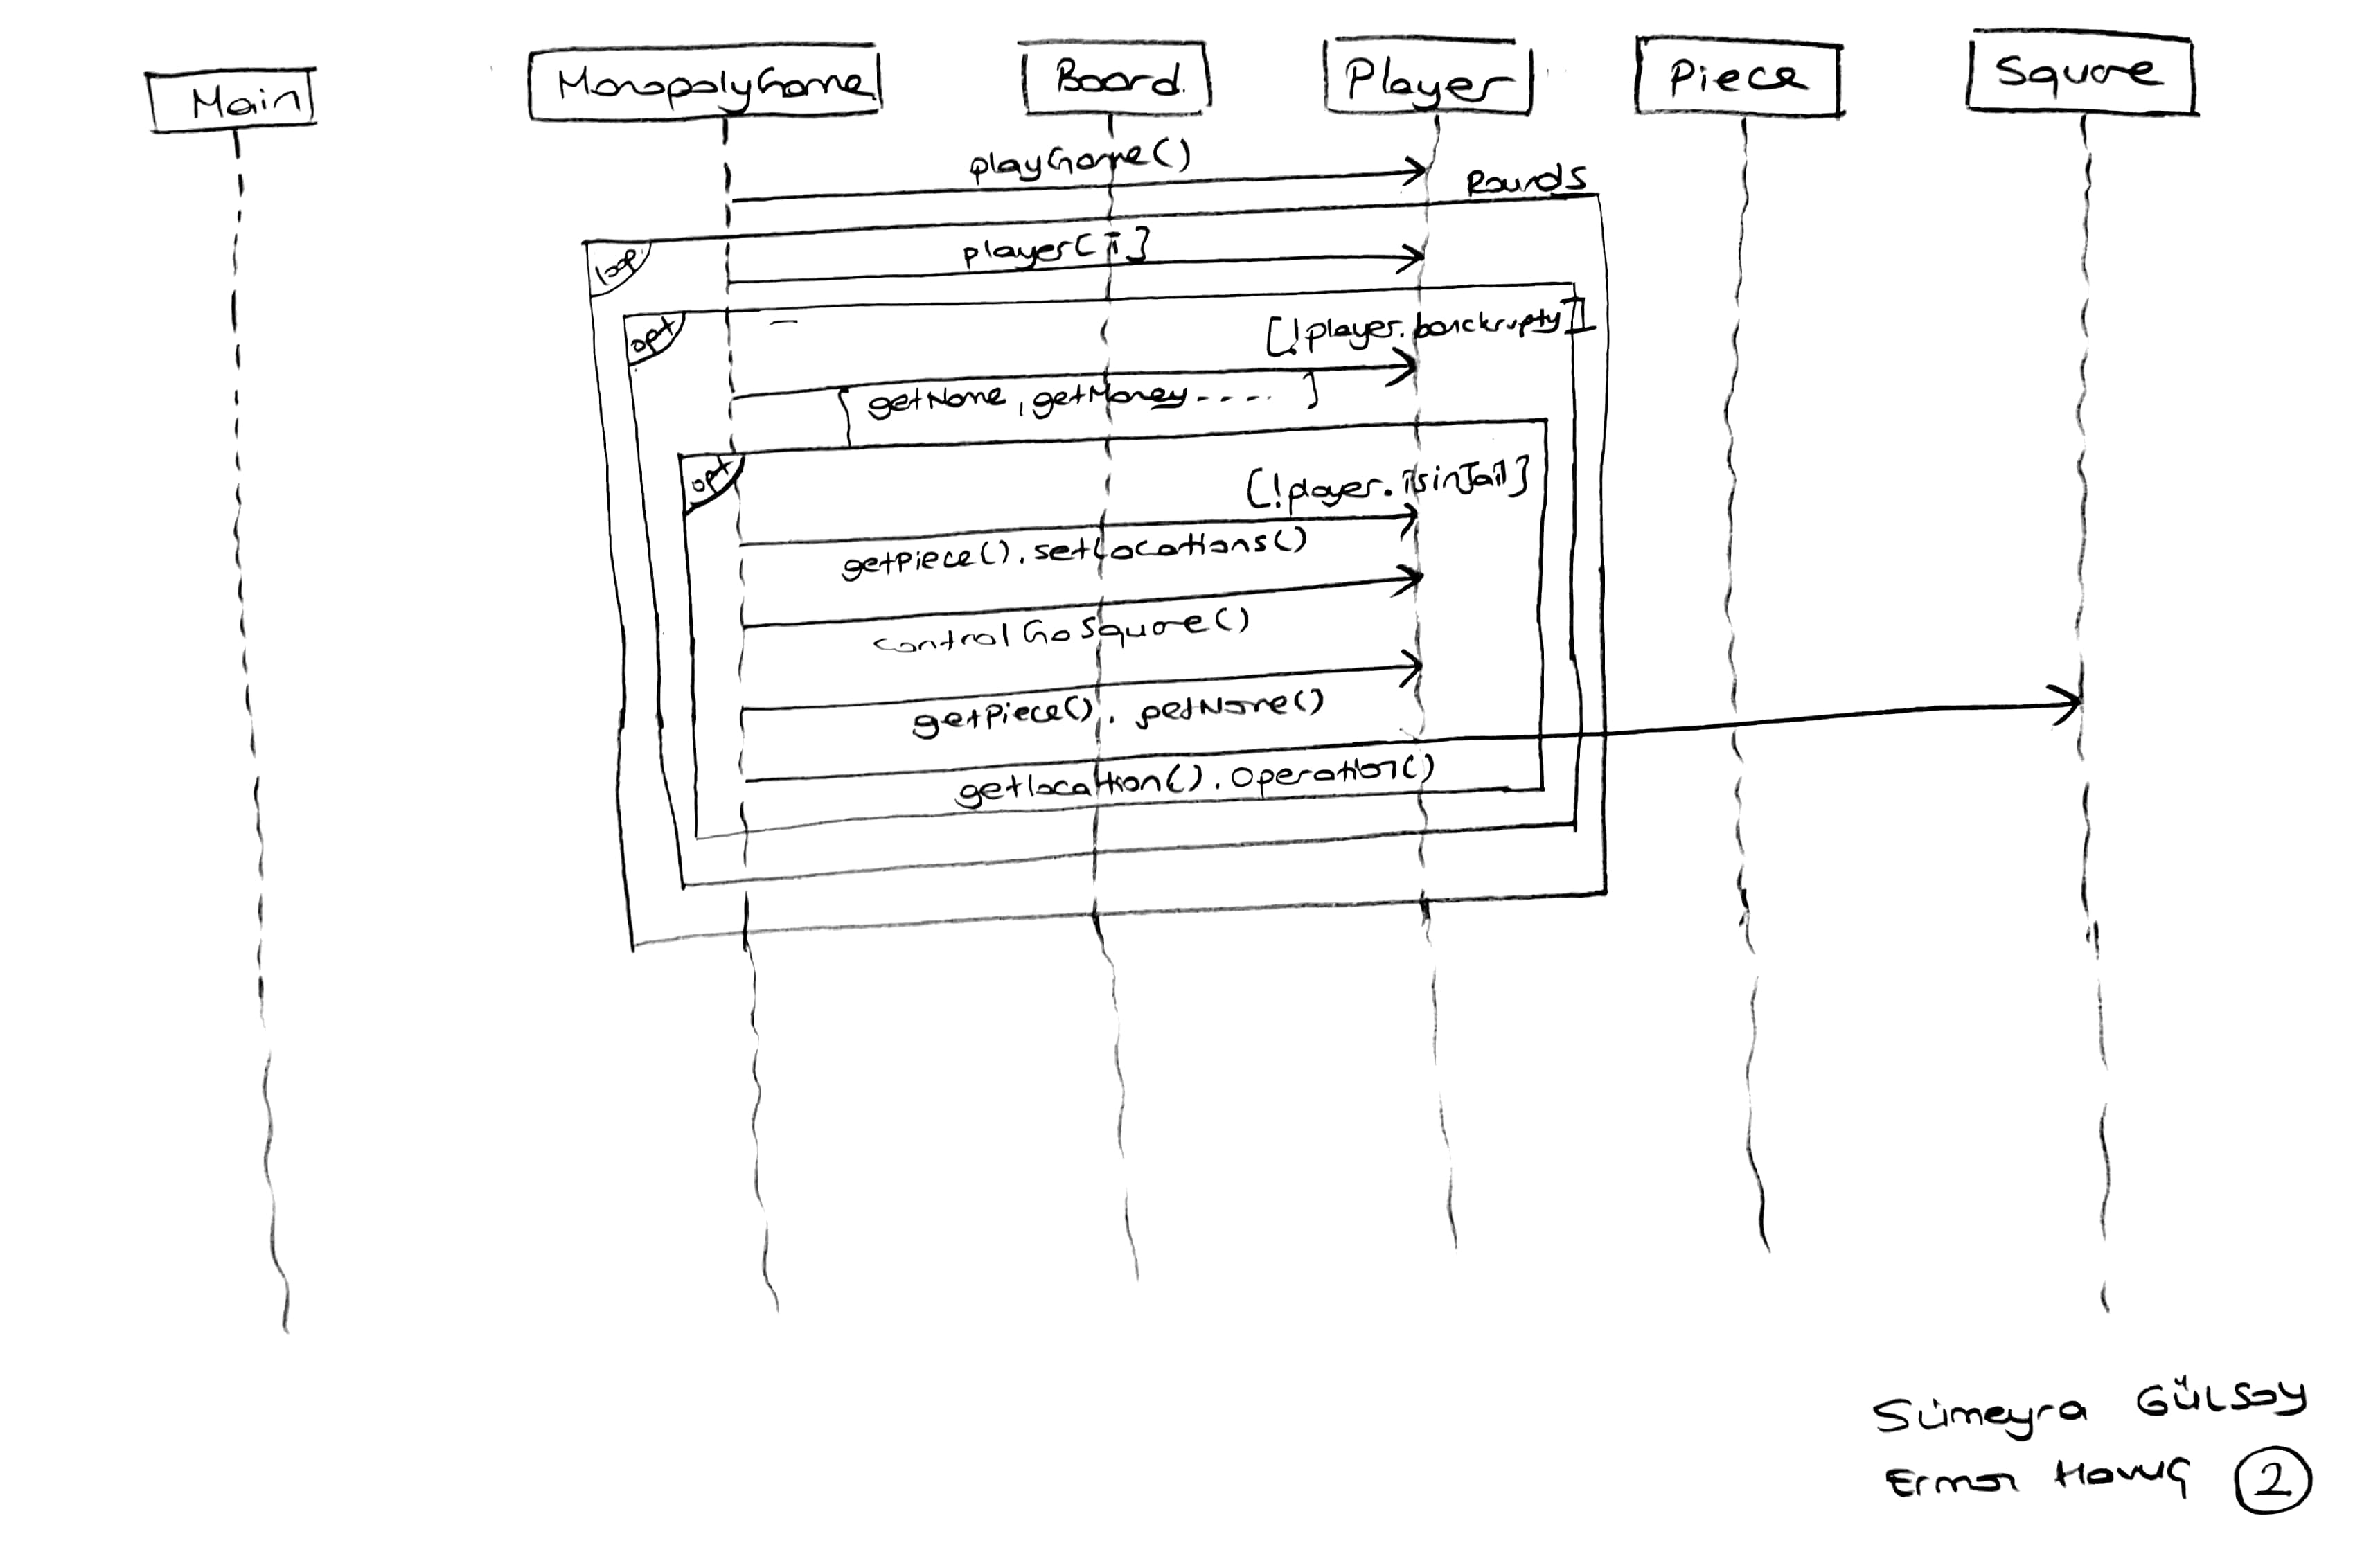 Main MonopolyGame Board Player Piece Square
playGame()
Rounds
loop
player[i]
opt
[!player.banckrupty]
getName, getMoney ----
opt
[!player.isinJail]
getpiece().setLocations()
controlGoSquare()
getPiece().
getlocation().Operation()
Sümeyra GÜLSOY
Erman Havuç 2